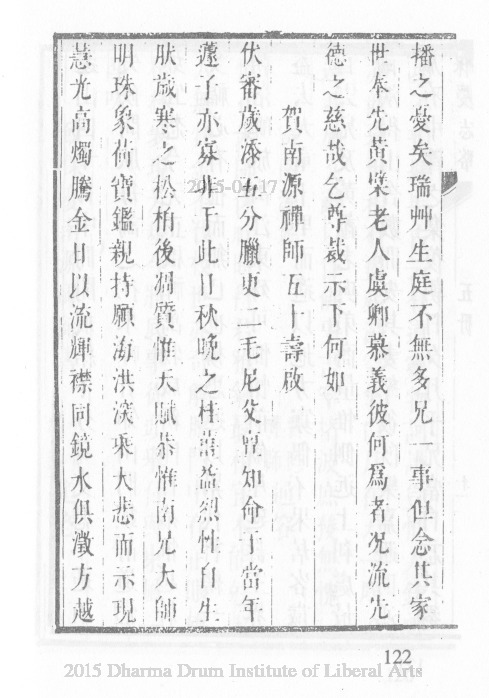 播之憂矣瑞艸生庭不無多兄一事但念其家
世奉先黃檗老人虞卿慕義彼何為者况流先
德之慈哉乞尊裁示下何如
賀南源禪師五十壽啟
伏審歲添五分臘更二毛尼父單知命于當年
蘧子亦寡非于此日秋晚之桂薑益烈性自生
肰歲寒之松柏後凋質惟天賦恭惟南兄大師
明珠象荷寶鑑親持願海洪深乘大悲而示現
慧光高燭騰金日以流輝襟同鏡水俱澂方越
2015-04-17
122
2015 Dharma Drum Institute of Liberal Arts